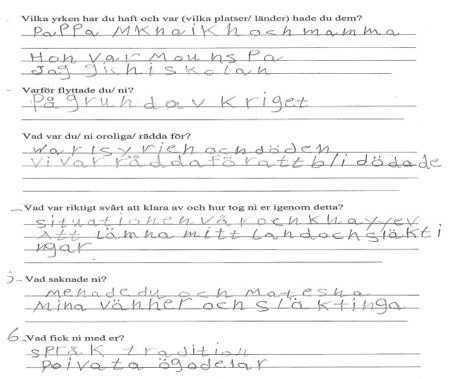 Vilka yrken har du haft och var (vilka platser/ länder) hade du dem?
Pappa MKnaikh och mamma
Hon var mouns Pa
Jag gick i skolan
Varför flyttade du/ ni?
På grund av Kriget
Vad var du/ ni oroliga/ rädda för?
war i syrien och döden
vi var rädda för att bli dödade
Vad var riktigt svårt att klara av och hur tog ni er igenom detta?
situationen vår och
Att lämna mitt land och släkti
ngar
5- Vad saknade ni?
menade du och
Mina vänner och släktinga
6- Vad fick ni med er?
språk tradition
poivata ägodelar